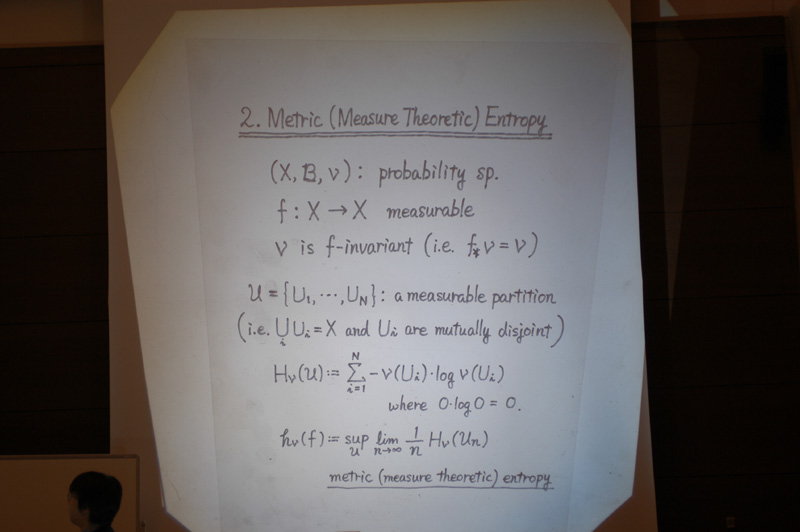 2. Metric (Measure Theoretic) Entropy
(X, B, ν) : probability sp.
f : X → X measurable
ν is f-invariant (i.e. f_*ν = ν)
𝒰 = {U₁, ⋯, U_N} : a measurable partition
(i.e. ⋃_i U_i = X and U_i are mutually disjoint)
H_ν(𝒰) := ∑_{i=1}^{N} -ν(U_i)·log ν(U_i)
where 0·log 0 = 0.
h_ν(f) := sup_𝒰 lim_{n→∞} 1/n H_ν(𝒰_n)
metric (measure theoretic) entropy